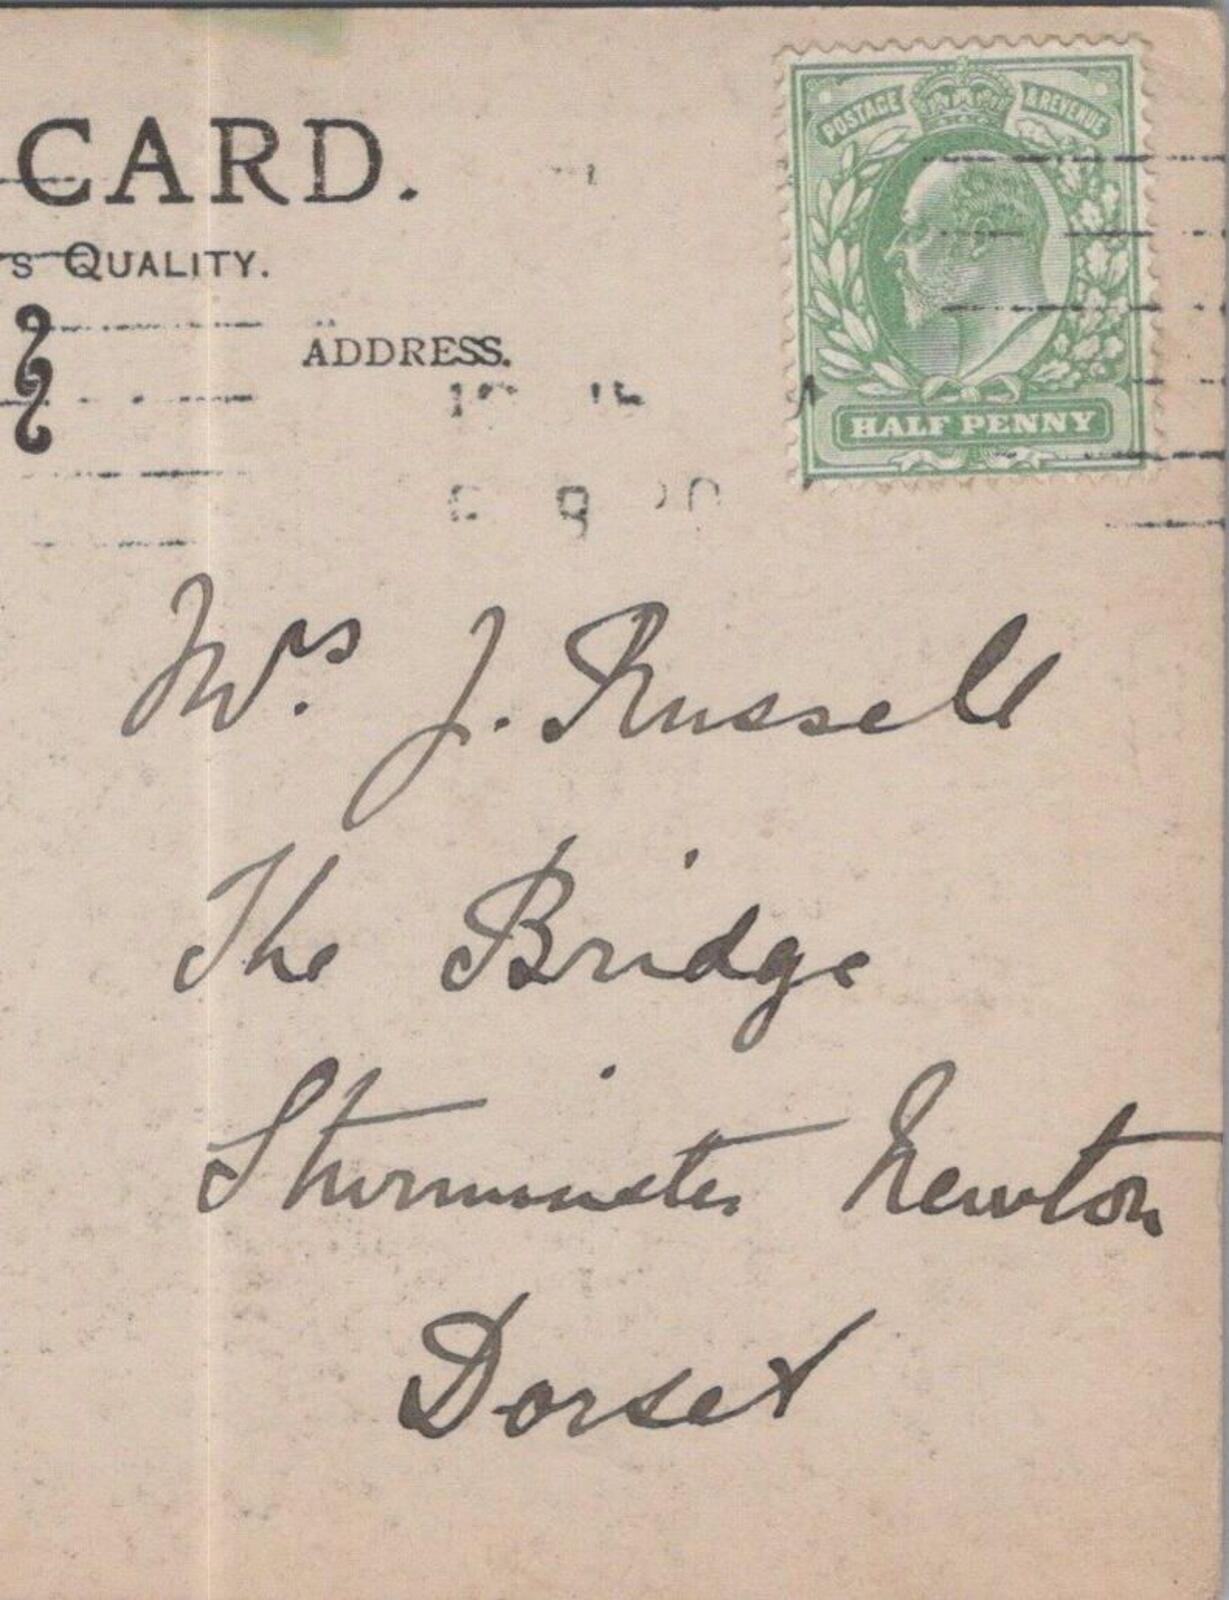 CARD.
S QUALITY.
ADDRESS.
POSTAGE & REVENUE
HALF PENNY
Mrs. J. Russell
The Bridge
Sturminster Newton
Dorset